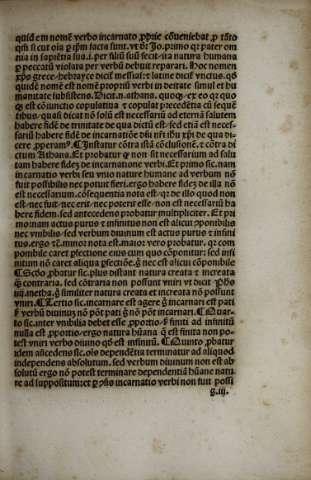 quidẽ m nomẽ verbo incarnato ꝓprie cõueniebat ꝓ tãto
qꝛ sicut oĩa ꝑ ip̃m facta sunt. vt dr̃ Jo. primo qꝛ pater om
nia in sapiẽtia sua. i. per filiũ suũ fecit. ita natura humana
ꝑ peccatũ violata per verbũ debuit reparari. Hoc nomen
xp̃s grece hebrayce dicit̃ messias: ⁊ latine dicit̃ vnctus. qd̃
quidẽ nomẽ est nomẽ propriũ verbi in deitate simul et hu
manitate subsistens. Dicit. n. athana. quoqꝫ. et eo qꝛ quo
qꝫ est cõiunctio copulatiua ⁊ copulat precedẽtia cũ seque
tibus. quasi dicat nõ solũ est necessariũ ad eternã salutem
habere fidẽ de trinitate de qua dictũ est. sed etiã est neces/
sariũ habere fidẽ de incarnatiõe dñi nr̃i ihu xp̃i de qua di
cere ꝓperamꝰ. ¶ Instatur cõtra istã cõclusionẽ. ⁊ cõtra di
ctum Athana. Et probatur ꝙ non sit necessarium ad salu
tam habere fidez de incarnatione verbi. Et primo sic. nam
in carnatio verbi seu vnio nature humane ad verbum nõ
fuit possibilis nec potuit fieri. ergo habere fidez de illa nõ
est necessarium. cõsequentia nota est. qꝛ de illo quod non
est. nec fuit. nec erit. nec poterit esse. non est necessariũ ha
bere fidem. sed antecedens probatur multipliciter. Et pri
mo. nam actus purus ⁊ infinitus non est alicui ꝓponibilis
nec vnibilis. sed verbum diuinum est actus purus ⁊ infini
tus. ergo ⁊c̃. minor nota est. maior vero probatur. qꝛ com
ponibile caret ꝑfectione eius cum quo cõponitur: sed infi
nitum nõ caret aliqua ꝑfectiõe. gͦ nec est alicui cõponibile
¶ Scðo ꝓbatur sic. plus distant natura creata ⁊ increata
ꝙ̃ contraria. sed cõtraria non possunt vniri vt dicit Phs
iiij. metha. gͦ similiter natura creata et increata nõ possunt
vniri. ¶ Tertio sic. incarnare est agere gͦ incarnari est pati
sꝫ verbũ diuinũ nõ põt pati gͦ nõ põt incarnari. ¶ Quar
to sic. inter vnibilia debet esse ꝓportio. sꝫ finiti ad infinitũ
nulla est ꝓportio: ergo natura hũana q̃ est finita non po/
test vniri verbo diuino qð est infinitũ. ¶ Quinto ꝓbatur
idem asẽcedens sic. oĩs dependẽtia terminatur ad aliquod
independens absolutum. sed verbum diuinum non est ab
solutũ ergo nõ potest terminare dependentiã hũane natu
re ad suppositum: et ꝑ cõñs incarnatio verbi non fuit possi
g. iij.